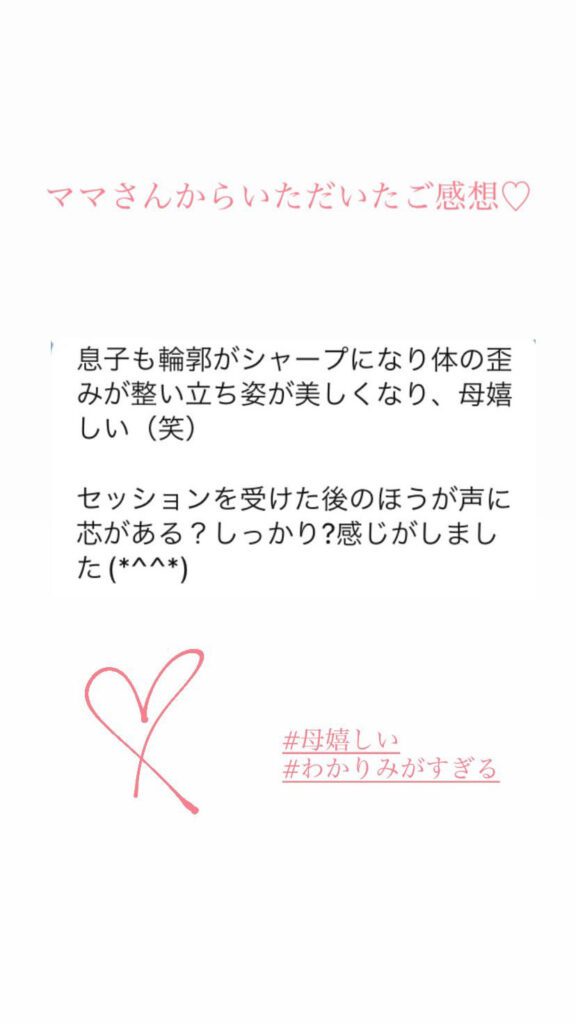 ママさんからいただいたご感想♡
息子も輪郭がシャープになり体の歪
みが整い立ち姿が美しくなり、母嬉
しい（笑）
セッションを受けた後のほうが声に
芯がある？しっかり?感じがしまし
た(*^^*)
#母嬉しい
#わかりみがすぎる